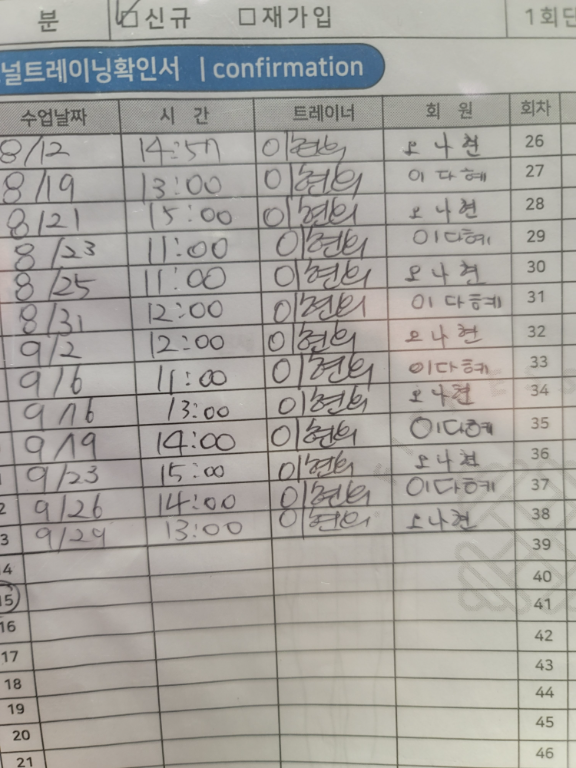 분 신규 □재가입 1회
널트레이닝확인서 | confirmation
수업날짜 시 간 트레이너 회 원 회차
8/12 이현의 오나현 26
8/19 13:00 이현의 이다혜 27
8/21 15:00 이현의 오나현 28
8/23 11:00 이현의 이다혜 29
8/25 11:00 이현의 오나현 30
8/31 12:00 이현의 이다혜 31
9/2 12:00 이현의 오나현 32
9/6 11:00 이현의 이다혜 33
9/16 13:00 이현의 오나현 34
9/19 14:00 이현의 이다혜 35
9/23 15:00 이현의 오나현 36
2 9/26 14:00 이현의 이다혜 37
3 9/29 13:00 이현의 오나현 38
14 39
15 40
16 41
17 42
18 43
19 44
20 45
21 46